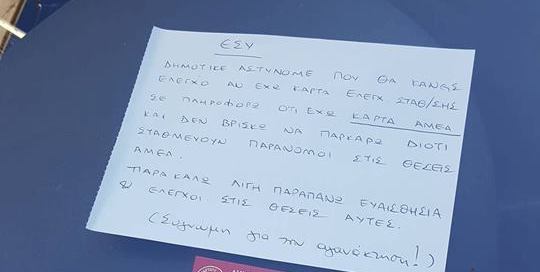 ΕΣΥ
ΔΗΜΟΤΙΚΕ ΑΣΤΥΝΟΜΕ ΠΟΥ ΘΑ ΚΑΝΕΙΣ
ΕΛΕΓΧΟ ΑΝ ΕΧΩ ΚΑΡΤΑ ΕΛΕΓΧ ΣΤΑΘ/ΣΗΣ
ΣΕ ΠΛΗΡΟΦΟΡΩ ΟΤΙ ΕΧΩ ΚΑΡΤΑ ΑΜΕΑ
ΚΑΙ ΔΕΝ ΒΡΙΣΚΩ ΝΑ ΠΑΡΚΑΡΩ ΔΙΟΤΙ
ΣΤΑΘΜΕΥΟΥΝ ΠΑΡΑΝΟΜΟΙ ΣΤΙΣ ΘΕΣΕΙΣ
ΑΜΕΑ.
ΠΑΡΑΚΑΛΩ ΛΙΓΗ ΠΑΡΑΠΑΝΩ ΕΥΑΙΣΘΗΣΙΑ
& ΕΛΕΓΧΟΙ ΣΤΙΣ ΘΕΣΕΙΣ ΑΥΤΕΣ.
(Συγνωμη για την αγανάκτηση!)